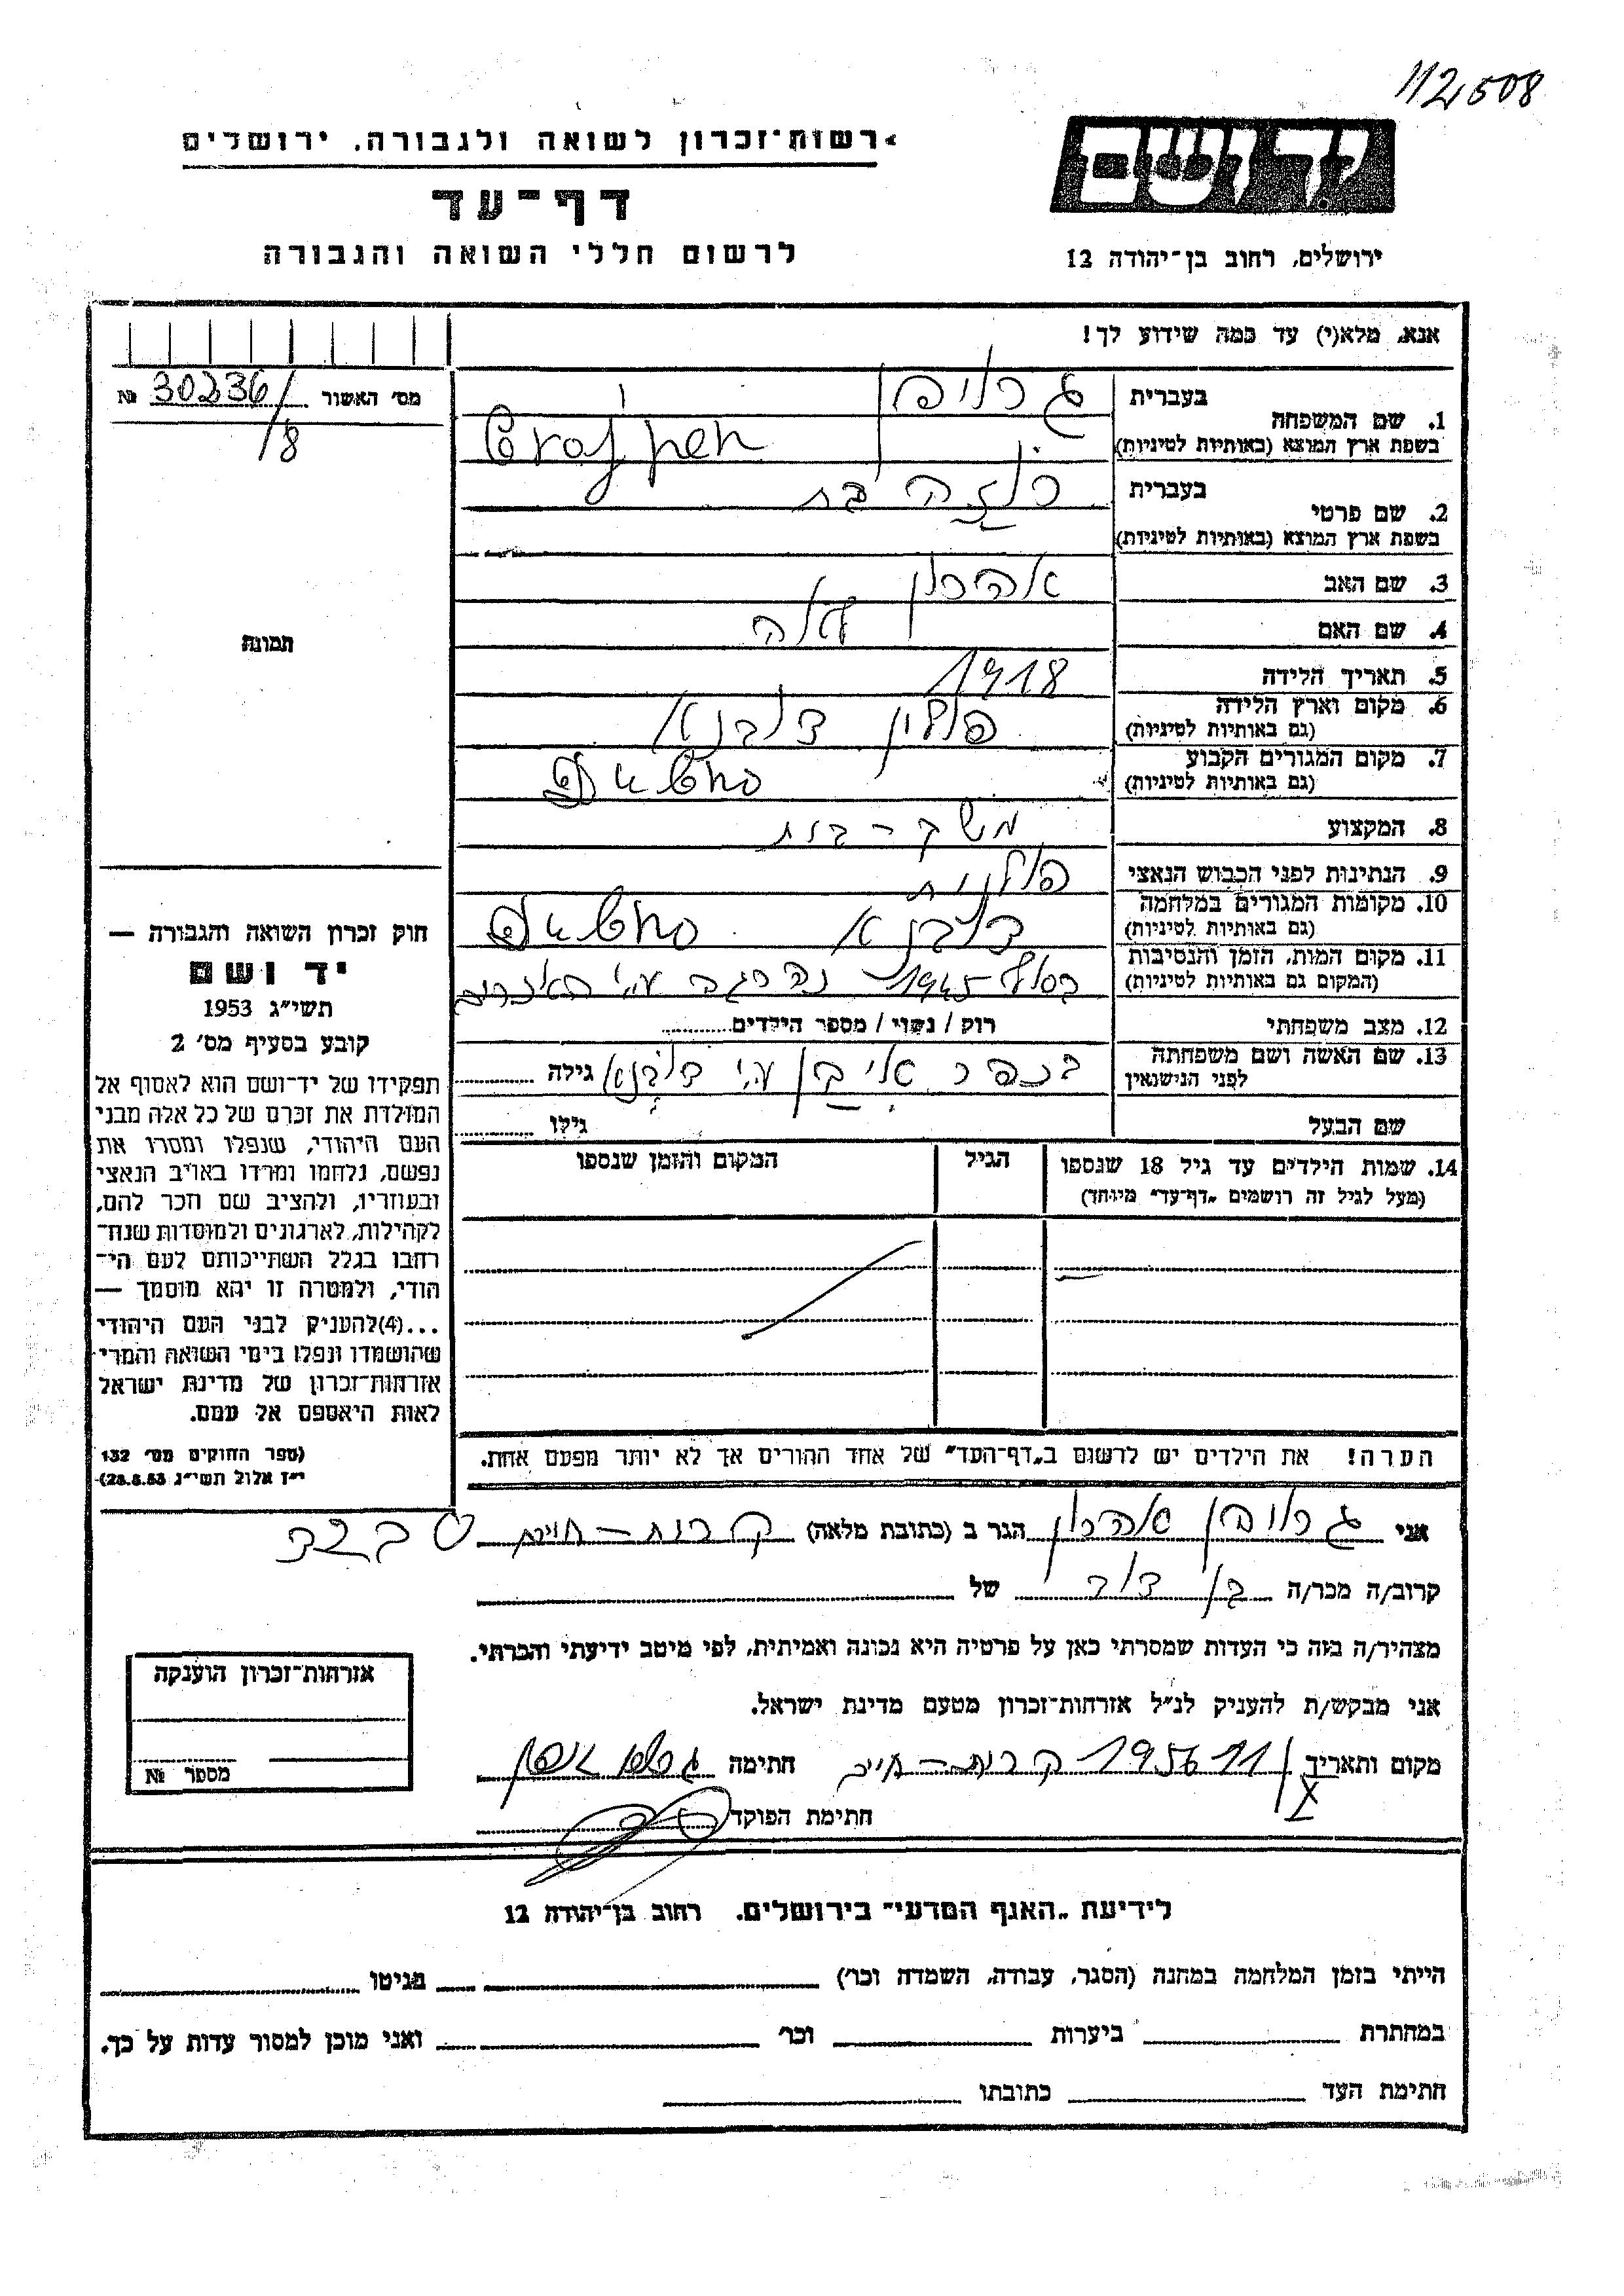 112508
רשות־זכרון לשואה ולגבורה. ירושלים
דף־עד
לרשום חללי השואה והגבורה
יד ושם
ירושלים, רחוב בן־יהודה 12
אנא, מלא(י) עד כמה שידוע לך!
מס׳ האשור № 30236/
/8
1. שם המשפחה
בעברית
בשפת ארץ המוצא (באותיות לטיניות)
Grojpen
2. שם פרטי
בעברית רוזה בת
בשפת ארץ המוצא (באותיות לטיניות)
3. שם האב אהרון
4. שם האם
5. תאריך הלידה 1918
6. מקום וארץ הלידה
(גם באותיות לטיניות)
פולין דובנא
7. מקום המגורים הקבוע
(גם באותיות לטיניות)
8. המקצוע משק־בית
9. הנתינות לפני הכבוש הנאצי פולנית
10. מקומות המגורים במלחמה
(גם באותיות לטיניות)
דובנא
11. מקום המות, הזמן והנסיבות
(המקום גם באותיות לטיניות)
בסוף 1945 נהרגה ע״י
12. מצב משפחתי
רוק / נשוי / מספר הילדים
13. שם האשה ושם משפחתה
לפני הנישואין
בכפר ע״י דובנא גילה
שם הבעל גילו
14. שמות הילדים עד גיל 18 שנספו
(מעל לגיל זה רושמים „דף־עד״ מיוחד)
הגיל
המקום והזמן שנספו
הערה! את הילדים יש לרשום ב„דף־העד״ של אחד ההורים אך לא יותר מפעם אחת.
תמונה
חוק זכרון השואה והגבורה —
יד ושם
תשי״ג 1953
קובע בסעיף מס׳ 2
תפקידו של יד־ושם הוא לאסוף אל
המולדת את זכרם של כל אלה מבני
העם היהודי, שנפלו ומסרו את
נפשם, נלחמו ומרדו באויב הנאצי
ובעוזריו, ולהציב שם וזכר להם,
לקהילות, לארגונים ולמוסדות שנח־
רבו בגלל השתייכותם לעם הי־
הודי, ולמטרה זו יהא מוסמך —
...(4)להעניק לבני העם היהודי
שהושמדו ונפלו בימי השואה והמרי
אזרחות־זכרון של מדינת ישראל
לאות היאספם אל עמם.
(ספר החוקים מס׳ 132
י״ז אלול תשי״ג 28.8.53)
אני גרויבן אהרון הגר ב (כתובת מלאה) קרית־חיים
קרוב/ה מכר/ה בן דוד של
מצהיר/ה בזה כי העדות שמסרתי כאן על פרטיה היא נכונה ואמיתית, לפי מיטב ידיעתי והכרתי.
אני מבקש/ת להעניק לנ״ל אזרחות־זכרון מטעם מדינת ישראל.
מקום ותאריך 11/X 1956 קרית־חיים חתימה
חתימת הפוקד
אזרחות־זכרון הוענקה
מספר №
לידיעת „האגף המדעי״ בירושלים. רחוב בן־יהודה 12
הייתי בזמן המלחמה במחנה (הסגר, עבודה, השמדה וכו׳) בגיטו
במחתרת ביערות וכו׳ ואני מוכן למסור עדות על כך.
חתימת העד כתובתו